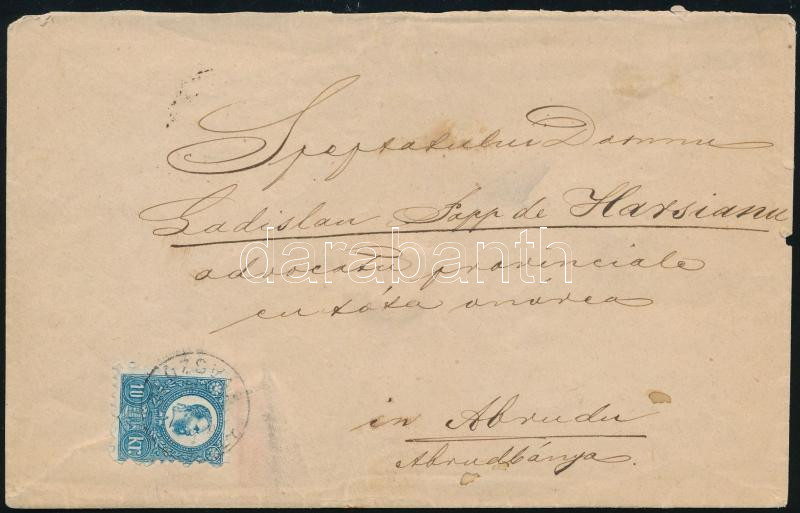 Speptatului Domnu
Ladislau Papp de Harsianu
advocatu provinciale
cu tóta onórea
in Abrudu
Abrudbánya.
10 KR.
darabanth